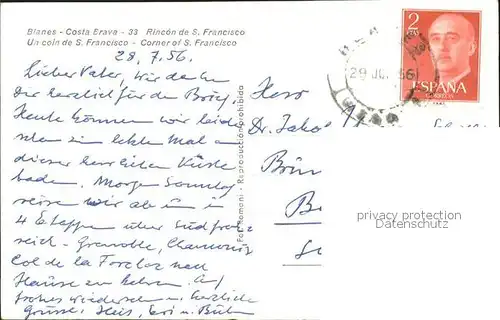 Blanes - Costa Brava - 33 Rincón de S. Francisco
Un coin de S. Francisco - Corner of S. Francisco
28.7.56.
Lieber Vater, wir danken
Dir herzlich für den Brief,
Heute können wir leider
zum letzten Mal an
dieser herrlichen Küste
baden. Morgen Sonntag
reisen wir ab um in
4 Etappen über Südfrank-
reich - Grenoble, Chamonix
Col de la Forclaz nach
Hause zu kehren. Auf
frohes Wiedersehen u. herzliche
Grüsse,
Herr
Dr. Jakob
Fot. Romani - Reproducción prohibida
2
PTAS
ESPAÑA
CORREOS
29 JUL 56
privacy protection
oldthing.de